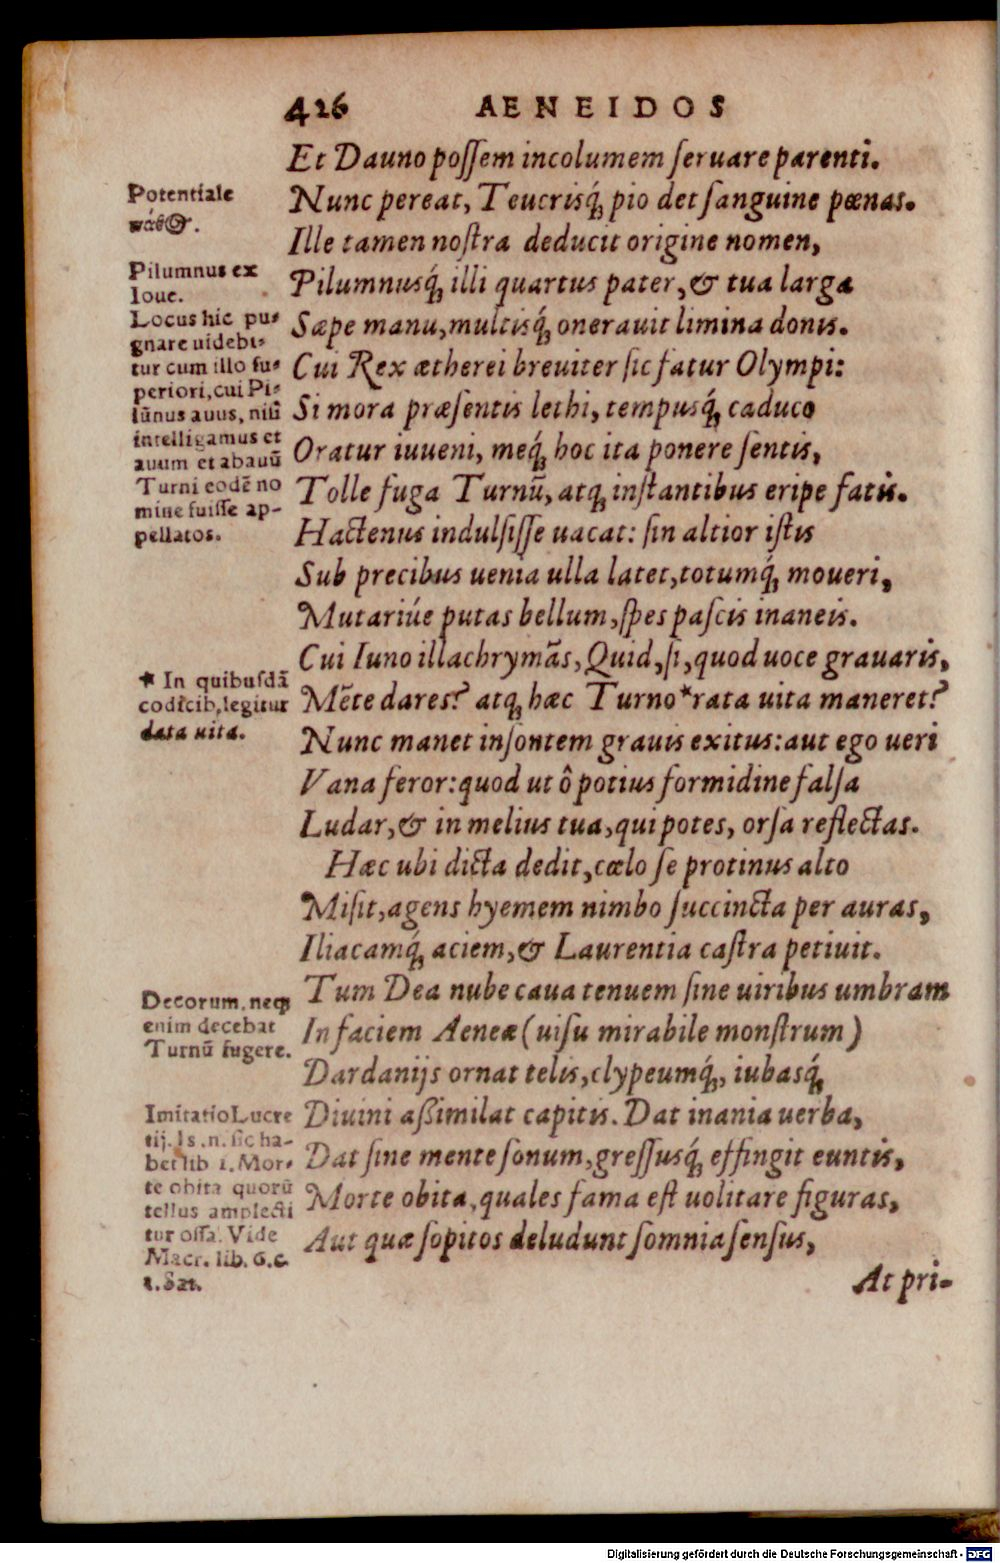 426 AENEIDOS
Et Dauno possem incolumem seruare parenti.
Nunc pereat, Teucrisq́; pio det sanguine pœnas.
Ille tamen nostra deducit origine nomen,
Pilumnusq́; illi quartus pater, & tua larga
Sæpe manu, multisq́; onerauit limina donis.
Cui Rex ætherei breuiter sic fatur Olympi:
Si mora præsentis lethi, tempusq́; caduco
Oratur iuueni, meq́; hoc ita ponere sentis,
Tolle fuga Turnū, atq; instantibus eripe fatis.
Hactenus indulsisse uacat: sin altior istis
Sub precibus uenia ulla latet, totumq́; moueri,
Mutariúe putas bellum, spes pascis inaneis.
Cui Iuno illachrymãs, Quid, si, quod uoce grauaris,
Mẽte dares? atq; hæc Turno*rata uita maneret?
Nunc manet insontem grauis exitus: aut ego ueri
Vana feror: quod ut ô potius formidine falsa
Ludar, & in melius tua, qui potes, orsa reflectas.
Hæc ubi dicta dedit, cœlo se protinus alto
Misit, agens hyemem nimbo succincta per auras,
Iliacamq́; aciem, & Laurentia castra petiuit.
Tum Dea nube caua tenuem sine uiribus umbram
In faciem Aeneæ (uisu mirabile monstrum)
Dardanijs ornat telis, clypeumq́;, iubasq́;
Diuini aßimilat capitis. Dat inania uerba,
Dat sine mente sonum, gressusq́; effingit euntis,
Morte obita, quales fama est uolitare figuras,
Aut quæ sopitos deludunt somnia sensus,
At pri-
Potentiale
Pilumnus ex
Ioue.
Locus hic pu-
gnare uidebi-
tur cum illo su-
periori, cui Pi-
lūnus auus, nisi
intelligamus et
auum et abauū
Turni eodẽ no
mine fuisse ap-
pellatos.
* In quibusdã
codicib. legitur
data uita.
Decorum. neq;
enim decebat
Turnū fugere.
Imitatio Lucre
tij. Is .n. sic ha-
bet lib 1. Mor-
te obita quorū
tellus amplecti
tur ossa. Vide
Macr. lib. 6. c.
1. Sat.
Digitalisierung gefördert durch die Deutsche Forschungsgemeinschaft - DFG